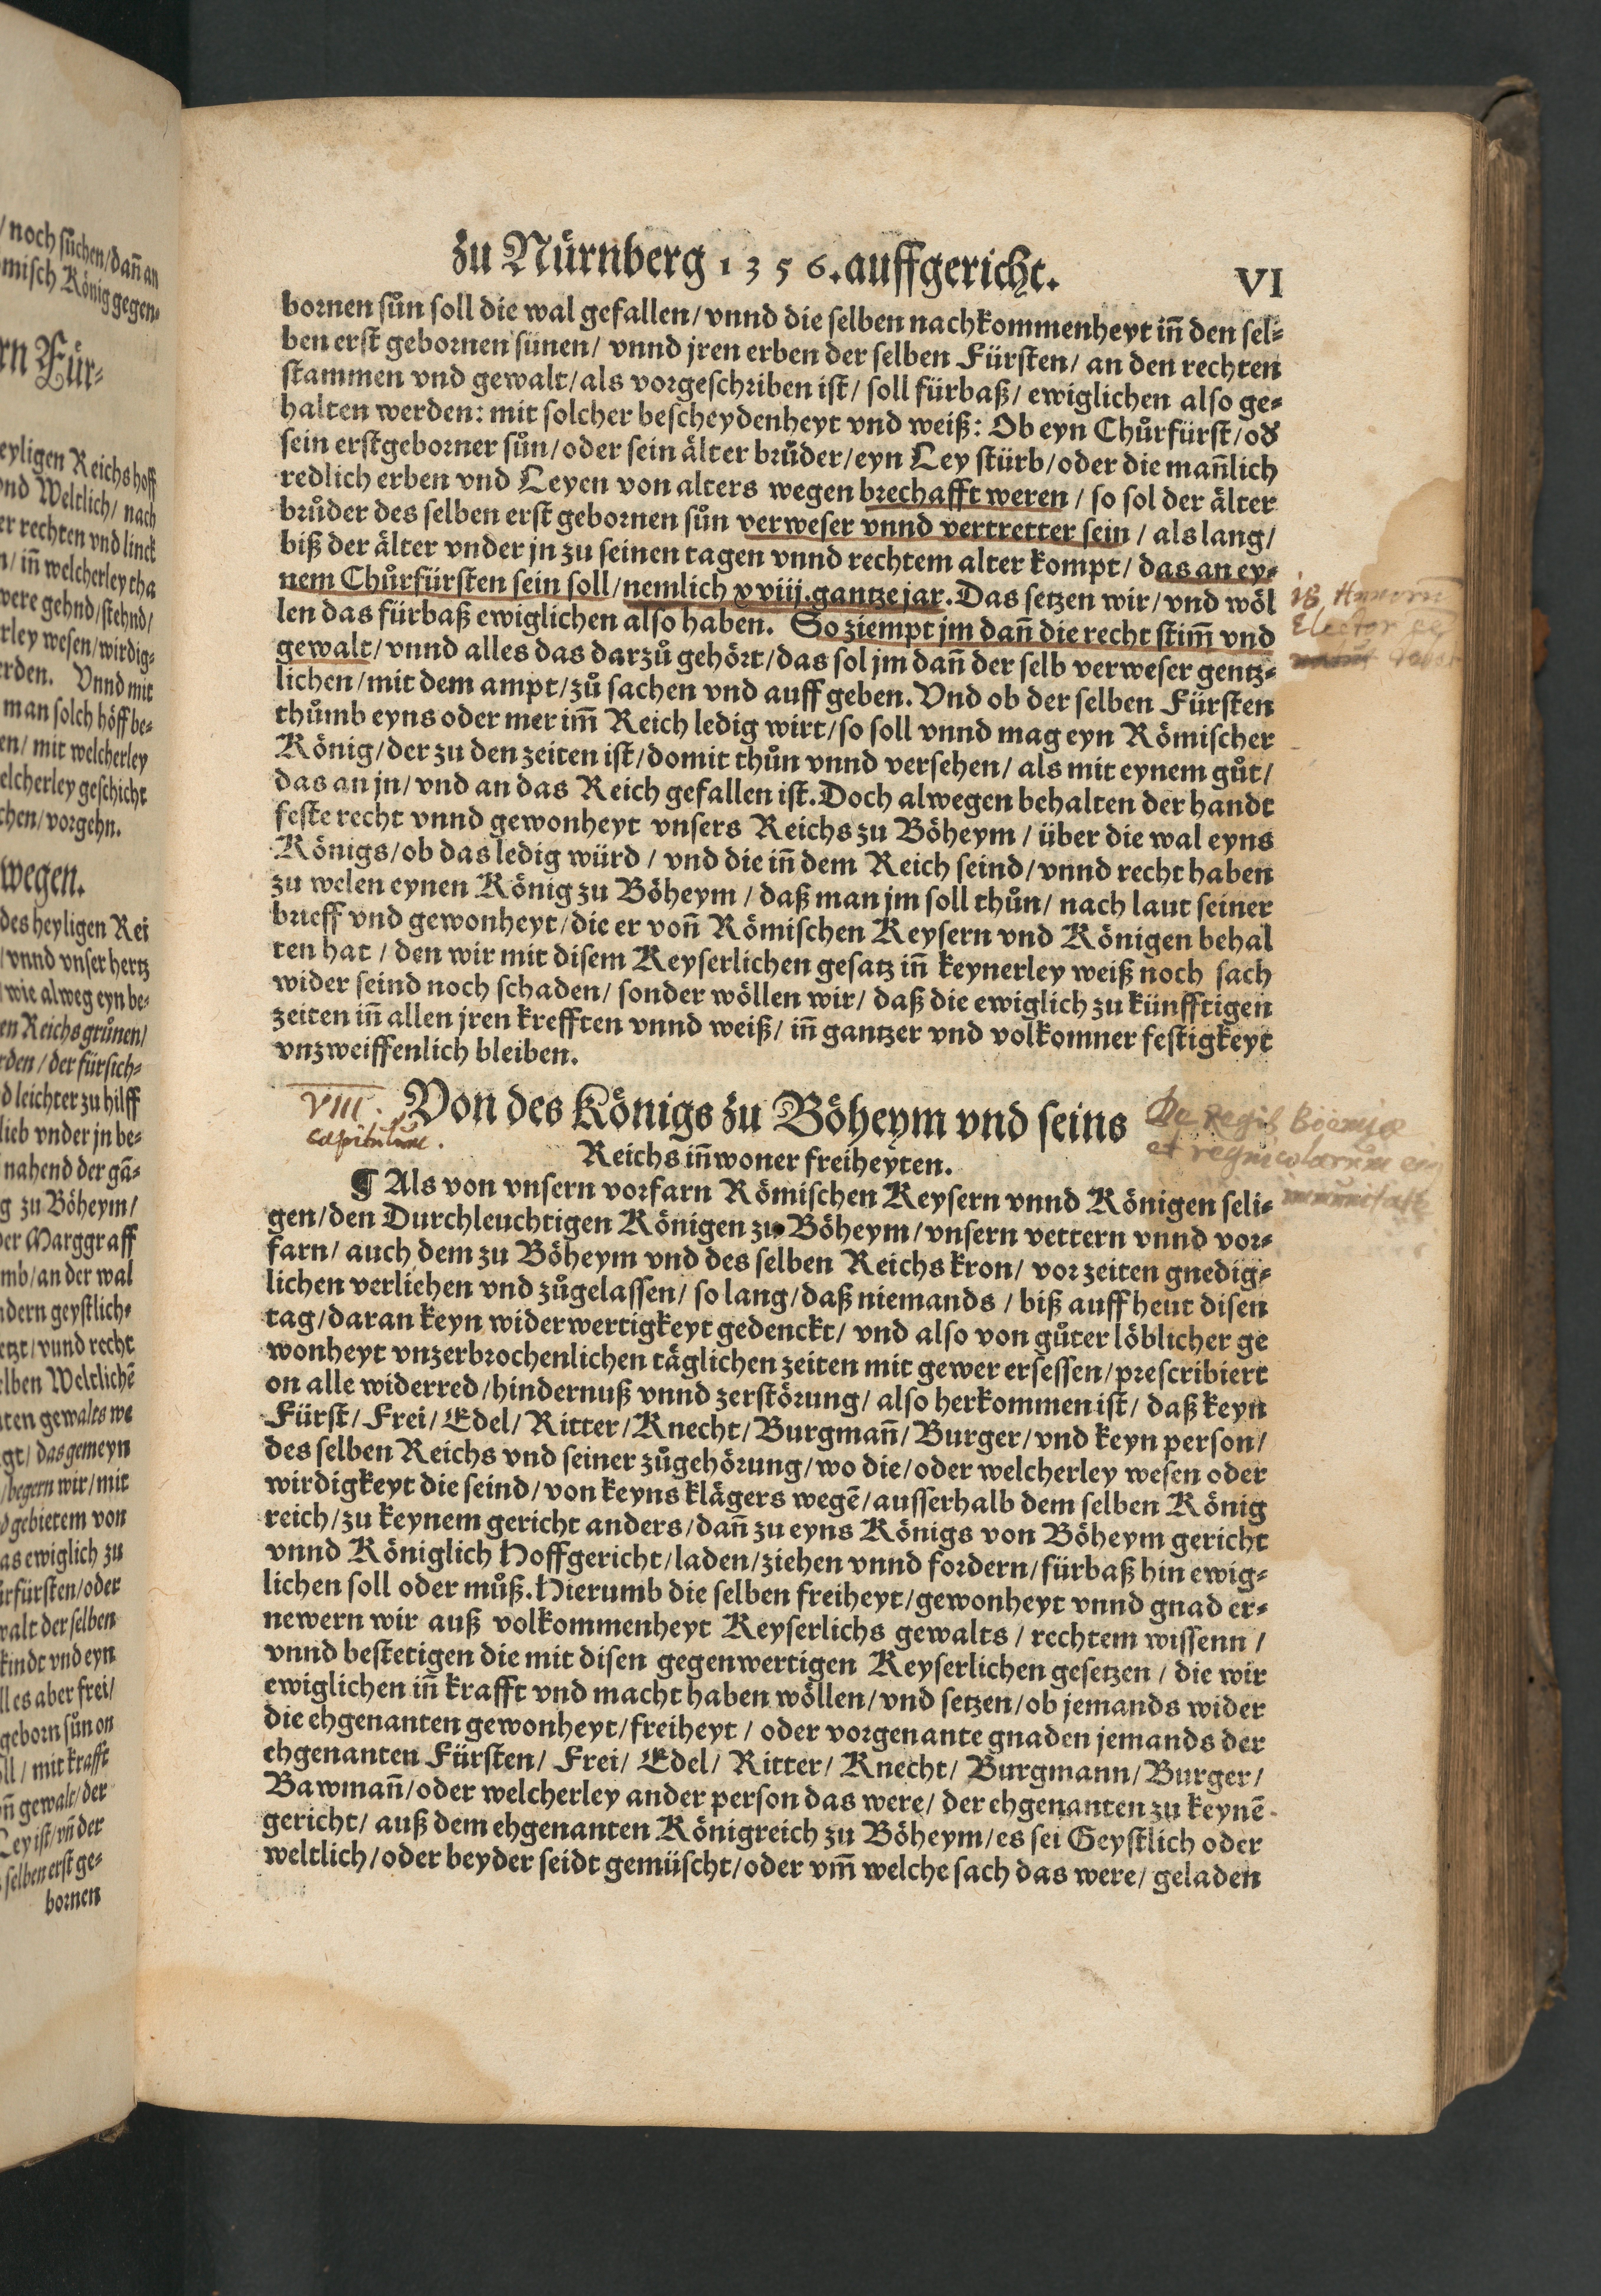 zu Nürnberg 1356. auffgericht. VI
bornen sůn soll die wal gefallen/ vnnd die selben nachkommenheyt iñ den sel⸗
ben erst gebornen sünen/ vnnd jren erben der selben Fürsten/ an den rechten
stammen vnd gewalt/ als vorgeschriben ist/ soll fürbaß/ ewiglichen also ge⸗
halten werden: mit solcher bescheydenheyt vnd weiß: Ob eyn Chůrfürst/ oď
sein erstgeborner sůn/ oder sein älter brůder/ eyn Ley stürb/ oder die mañlich
redlich erben vnd Leyen von alters wegen brechafft weren / so sol der älter
brůder des selben erst gebornen sůn verweser vnnd vertretter sein / als lang/
biß der älter vnder jn zu seinen tagen vnnd rechtem alter kompt/ das an ey⸗
nem Chůrfürsten sein soll/ nemlich xviij. gantze jar. Das setzen wir/ vnd wöl
len das fürbaß ewiglichen also haben. So ziempt jm dañ die recht stim̃ vnd
gewalt/ vnnd alles das darzů gehört/ das sol jm dañ der selb verweser gentz⸗
lichen/ mit dem ampt/ zů sachen vnd auff geben. Vnd ob der selben Fürsten
thůmb eyns oder mer im̃ Reich ledig wirt/ so soll vnnd mag eyn Römischer
König/ der zu den zeiten ist/ domit thůn vnnd versehen/ als mit eynem gůt/
das an jn/ vnd an das Reich gefallen ist. Doch alwegen behalten der handt
feste recht vnnd gewonheyt vnsers Reichs zu Böheym / über die wal eyns
Königs/ ob das ledig würd / vnd die iñ dem Reich seind/ vnnd recht haben
zu welen eynen König zu Böheym / daß man jm soll thůn/ nach laut seiner
brieff vnd gewonheyt/ die er voñ Römischen Keysern vnd Königen behal
ten hat / den wir mit disem Keyserlichen gesatz iñ keynerley weiß noch sach
wider seind noch schaden/ sonder wöllen wir/ daß die ewiglich zu künfftigen
zeiten iñ allen jren krefften vnnd weiß/ iñ gantzer vnd volkomner festigkeyt
vnzweiffenlich bleiben.
VIII. Von des Königs zu Böheym vnd seins
capitulum.
Reichs iñwoner freiheyten.
¶ Als von vnsern vorfarn Römischen Keysern vnnd Königen seli⸗
gen/ den Durchleuchtigen Königen zu Böheym/ vnsern vettern vnnd vor⸗
farn/ auch dem zu Böheym vnd des selben Reichs kron/ vor zeiten gnedig⸗
lichen verlichen vnd zůgelassen/ so lang/ daß niemands / biß auff heut disen
tag/ daran keyn widerwertigkeyt gedenckt/ vnd also von gůter löblicher ge
wonheyt vnzerbrochenlichen täglichen zeiten mit gewer ersessen/ prescribiert
on alle widerred/ hindernuß vnnd zerstörung/ also herkommen ist/ daß keyn
Fürst/ Frei/ Edel/ Ritter/ Knecht/ Burgmañ/ Burger/ vnd keyn person/
des selben Reichs vnd seiner zůgehörung/ wo die/ oder welcherley wesen oder
wirdigkeyt die seind/ von keyns klägers wegẽ/ ausserhalb dem selben König
reich/ zu keynem gericht anders/ dañ zu eyns Königs von Böheym gericht
vnnd Königlich Hoffgericht/ laden/ ziehen vnnd fordern/ fürbaß hin ewig⸗
lichen soll oder můß. Hierumb die selben freiheyt/ gewonheyt vnnd gnad er⸗
newern wir auß volkommenheyt Keyserlichs gewalts / rechtem wissenn /
vnnd bestetigen die mit disen gegenwertigen Keyserlichen gesetzen / die wir
ewiglichen iñ krafft vnd macht haben wöllen/ vnd setzen/ ob jemands wider
die ehgenanten gewonheyt/ freiheyt / oder vorgenante gnaden jemands der
ehgenanten Fürsten/ Frei/ Edel/ Ritter/ Knecht/ Burgmann/ Burger/
Bawmañ/ oder welcherley ander person das were/ der ehgenanten zu keynẽ
gericht/ auß dem ehgenanten Königreich zu Böheym/ es sei Geystlich oder
weltlich/ oder beyder seidt gemüscht/ oder vm̃ welche sach das were/ geladen
18 Annorũ
Elector
De Regis Boemiæ
et regnicolarum
immunitate
/ noch sůchen/ dañ an
misch König gegen⸗
rn Für⸗
eyligen Reichs hoff
vnd Weltlich/ nach
er rechten vnd linck
n/ iñ welcherley tha
were gehnd/ stehnd/
rley wesen/ wirdig⸗
rden. Vnnd mit
man solch höff be⸗
en/ mit welcherley
elcherley geschicht
chen/ vorgehn.
wegen.
des heyligen Rei
/ vnnd vnser hertz
wie alweg eyn be⸗
en Reichs grůnen/
rden/ der fürsich⸗
d leichter zu hilff
lieb vnder jn be⸗
nahend der gã⸗
g zu Böheym/
der Marggraff
mb/ an der wal
ndern geystlich⸗
etzt/ vnnd recht
elben Weltlichẽ
ten gewalts we
gt/ das gemeyn
/ begern wir/ mit
d gebietem von
as ewiglich zu
ürfürsten/ oder
walt der selben
kindt vnd eyn
ll es aber frei/
geborn sůn on
oll/ mit krafft
ñ gewalt/ der
Ley ist/ vñ der
selben erst ge⸗
bornen